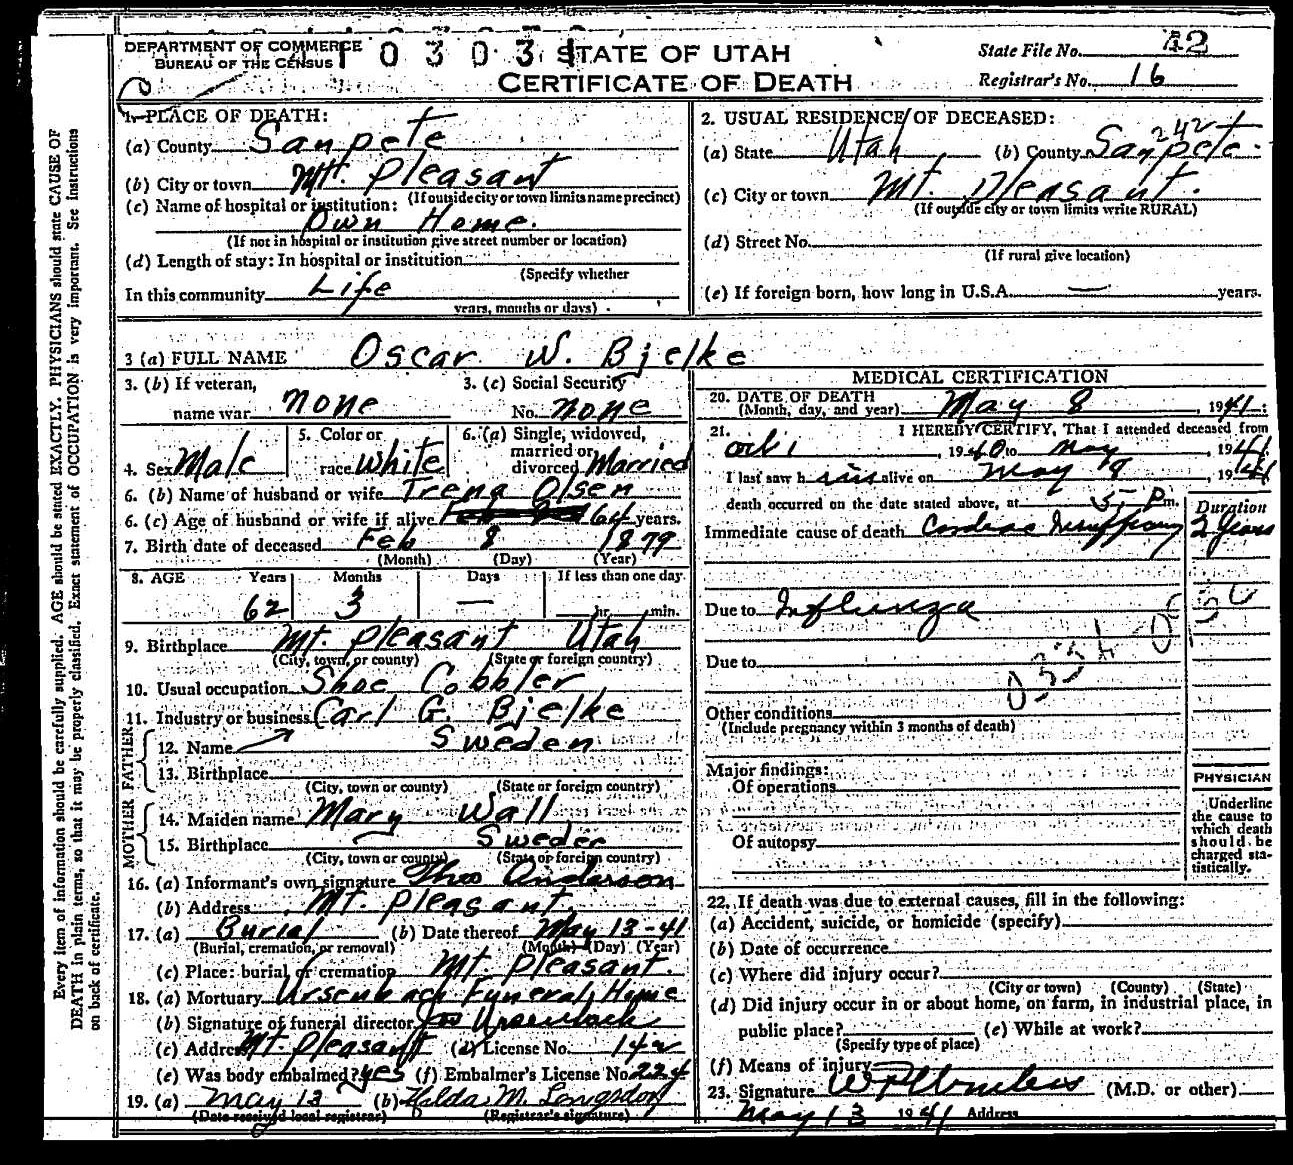 DEPARTMENT OF COMMERCE
BUREAU OF THE CENSUS
STATE OF UTAH
CERTIFICATE OF DEATH
State File No. 42
Registrar's No. 16
Every item of information should be carefully supplied. AGE should be stated EXACTLY. PHYSICIANS should state CAUSE OF
DEATH in plain terms, so that it may be properly classified. Exact statement of OCCUPATION is very important. See instructions
on back of certificate.
1. PLACE OF DEATH:
(a) County Sanpete
(b) City or town Mt. Pleasant
(If outside city or town limits name precinct)
(c) Name of hospital or institution:
Own Home.
(If not in hospital or institution give street number or location)
(d) Length of stay: In hospital or institution
(Specify whether
In this community Life
years, months or days)
2. USUAL RESIDENCE OF DECEASED:
242
(a) State Utah (b) County Sanpete.
(c) City or town Mt. Pleasant.
(If outside city or town limits write RURAL)
(d) Street No.
(If rural give location)
(e) If foreign born, how long in U.S.A. — years.
3 (a) FULL NAME Oscar W. Bjelke
3. (b) If veteran, name war none
3. (c) Social Security No. none
4. Sex Male
5. Color or race White
6. (a) Single, widowed, married or divorced Married
6. (b) Name of husband or wife Trena Olsen
6. (c) Age of husband or wife if alive 64 years.
7. Birth date of deceased Feb 8 1879
(Month) (Day) (Year)
8. AGE Years Months Days If less than one day
62 3 — hr. min.
9. Birthplace Mt. Pleasant Utah
(City, town, or county) (State or foreign country)
10. Usual occupation Shoe Cobbler
11. Industry or business Carl G. Bjelke
FATHER
12. Name Sweden
13. Birthplace
(City, town or county) (State or foreign country)
MOTHER
14. Maiden name Mary Wall
15. Birthplace Sweden
(City, town or county) (State or foreign country)
16. (a) Informant's own signature Theo Anderson
(b) Address Mt. Pleasant.
17. (a) Burial (b) Date thereof May 13-41
(Burial, cremation, or removal) (Month) (Day) (Year)
(c) Place: burial or cremation Mt Pleasant.
18. (a) Mortuary Ursenbach Funeral Home
(b) Signature of funeral director Ursenbach
(c) Address Mt. Pleasant (d) License No. 142
(e) Was body embalmed? yes (f) Embalmer's License No. 224
19. (a) May 13 (b) Hilda M. Longsdorf
(Date received local registrar) (Registrar's signature)
MEDICAL CERTIFICATION
20. DATE OF DEATH
(Month, day, and year) May 8, 1941.
21. I HEREBY CERTIFY, That I attended deceased from
Oct 1, 1940 to May, 1941
I last saw him alive on May 8, 1941
death occurred on the date stated above, at 5 Pm.
Duration
Immediate cause of death Cardiac 2 Years
Due to Influenza
Due to
Other conditions
(Include pregnancy within 3 months of death)
Major findings:
Of operations
Of autopsy
PHYSICIAN
Underline
the cause to
which death
should be
charged sta-
tistically.
22. If death was due to external causes, fill in the following:
(a) Accident, suicide, or homicide (specify)
(b) Date of occurrence
(c) Where did injury occur?
(City or town) (County) (State)
(d) Did injury occur in or about home, on farm, in industrial place, in
public place? (e) While at work?
(Specify type of place)
(f) Means of injury
23. Signature (M.D. or other)
May 13 1941 Address